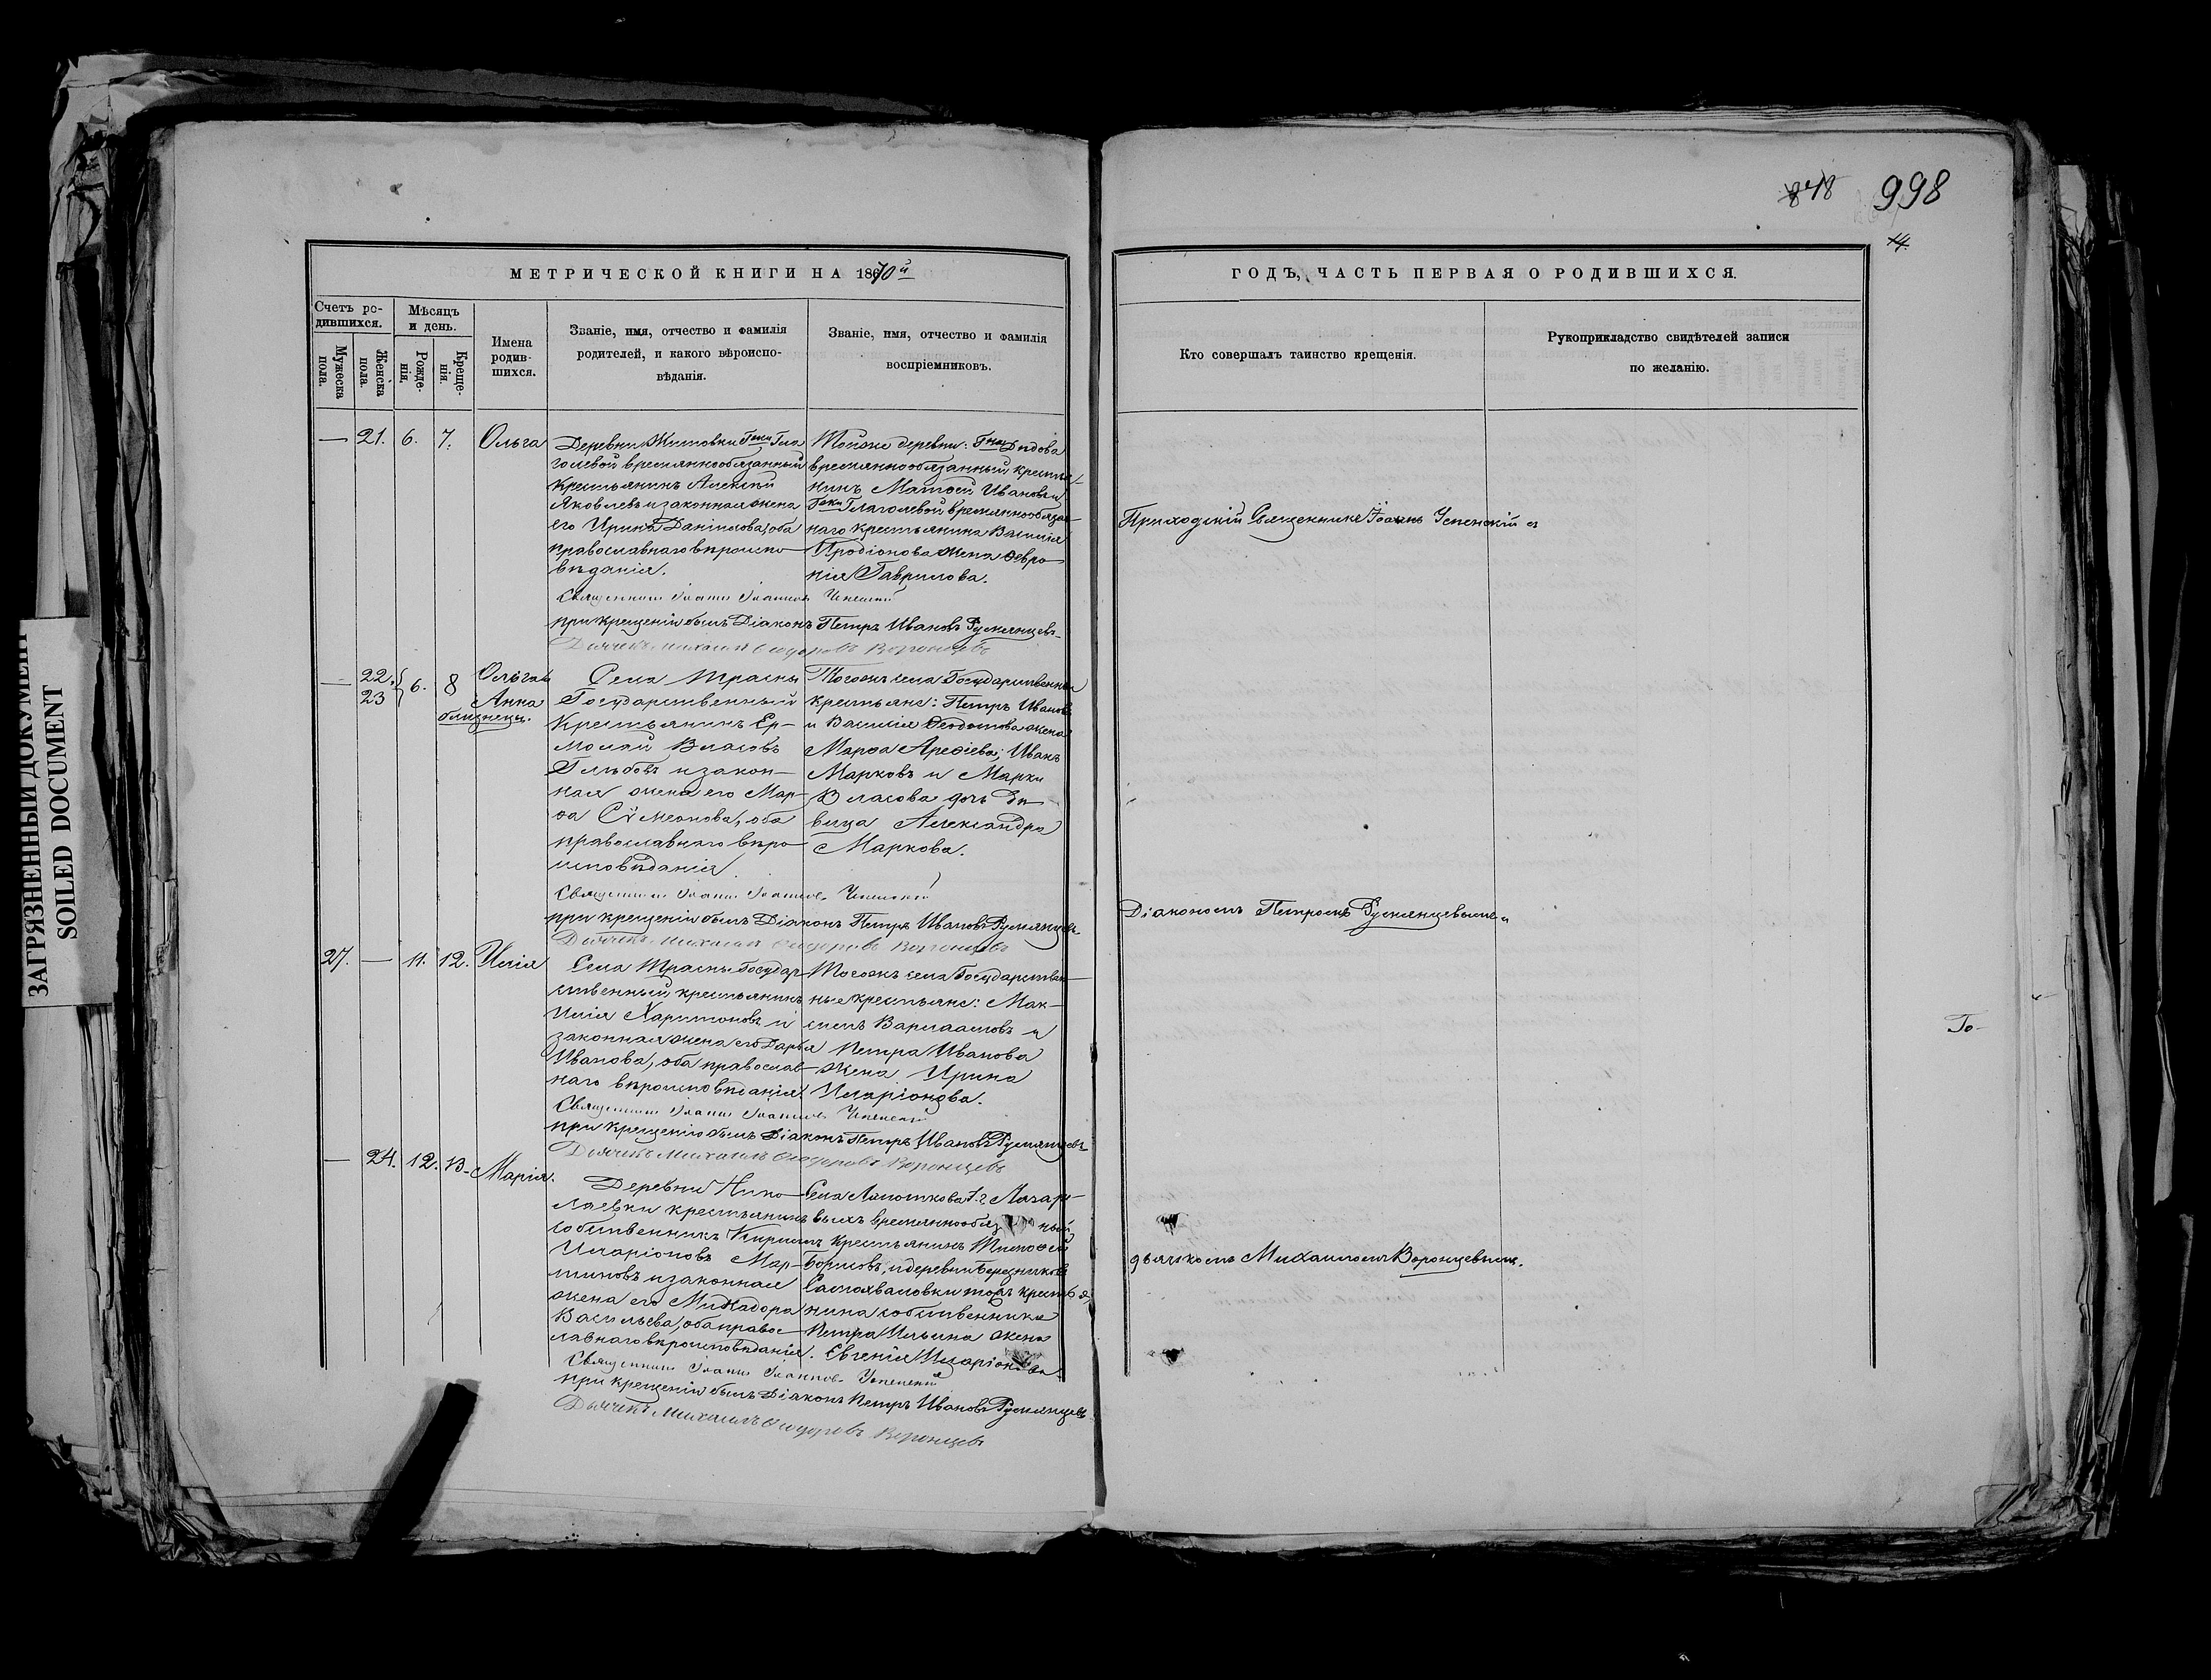 848 998
14.
МЕТРИЧЕСКОЙ КНИГИ НА 1870й
ГОДЪ, ЧАСТЬ ПЕРВАЯ О РОДИВШИХСЯ.
Счетъ ро-
дившихся.
Мужеска
пола.
Женска
пола.
Мѣсяцъ
и день.
Рожде-
нія.
Креще-
нія.
Имена
родив-
шихся.
Званіе, имя, отчество и фамилія
родителей, и какого вѣроиспо-
вѣданія.
Званіе, имя, отчество и фамилія
воспріемниковъ.
Кто совершалъ таинство крещенія.
Рукоприкладство свидѣтелей записи
по желанію.
— 21. 6. 7. Ольга
Деревни Гла
голевой временнообязанный
крестьянинъ Алексѣй
Яковлевъ и законная жена
его Ирина Даніилова, оба
православнаго вѣроиспо
вѣданія.
Тойже деревни: Дѣдова
временнообязанный кресть
нинъ Матѳей Ивановъ и
Глаголевой временнообязан
наго крестьянина Василія
Иродіонова жена Февро
нія Гаврилова.
Священникъ Іоаннъ Іоанновъ Успенскій
при крещеніи былъ Діаконъ Петръ Ивановъ Румянцевъ
Дьячекъ Михаилъ Ѳеодоровъ Воронцовъ
Приходскій Священникъ Іоаннъ Успенскій с
— 22. 23 6. 8 Ольга и
Анна
близнецы.
Села Трасны
Государственный
Крестьянинъ Ер-
молай Власовъ
Глѣбовъ и закон-
ная жена его Мар-
ѳа Сѵмеонова, оба
православнаго вѣро
исповѣданія.
Тогожъ села Государственные
крестьяне: Петръ Ивановъ
и Василія Ѳеодотова жена
Марѳа Арефіева; Иванъ
Марковъ и Марки
Власова дочь дѣ-
вица Александра
Маркова.
Священникъ Іоаннъ Іоанновъ Успенскій
при крещеніи былъ Діаконъ Петръ Ивановъ Румянцевъ
Дьячекъ Михаилъ Ѳеодоровъ Воронцовъ
Діакономъ Петромъ Румянцевымъ и
27. — 11. 12. Илія
Села Трасны Государ
ственный крестьянинъ
Илія Харитоновъ и
законная жена его Дарья
Иванова, оба православ
наго вѣроисповѣданія.
Тогожъ села Государствен
ные крестьяне: Мак-
симъ Варлаамовъ и
Петра Иванова
жена Ирина
Иларіонова.
Священникъ Іоаннъ Іоанновъ Успенскій
при крещеніи былъ Діаконъ Петръ Ивановъ Румянцевъ
Дьячекъ Михаилъ Ѳеодоровъ Воронцовъ
То-
— 24. 12. 13. Марія.
Деревни Нико
лаевки крестьянинъ
собственникъ Кириллъ
Иларіоновъ Мар-
тиновъ и законная
жена его Миnадора
Васильева, оба право
славнаго вѣроисповѣданія.
Села г. Лазаре
выхъ временнообяз ный
крестьянинъ Тимоѳей
Борисовъ, и деревни Березников
Самохваловки тожъ крестья
нина собственника
Петра Ильина жена
Евгенія Иларіонова
Священникъ Іоаннъ Іоанновъ Успенскій
при крещеніи былъ Діаконъ Петръ Ивановъ Румянцевъ
Дьячекъ Михаилъ Ѳеодоровъ Воронцовъ
дьячкомъ Михаиломъ Воронцевымъ.
ЗАГРЯЗНЕННЫЙ ДОКУМЕНТ
SOILED DOCUMENT